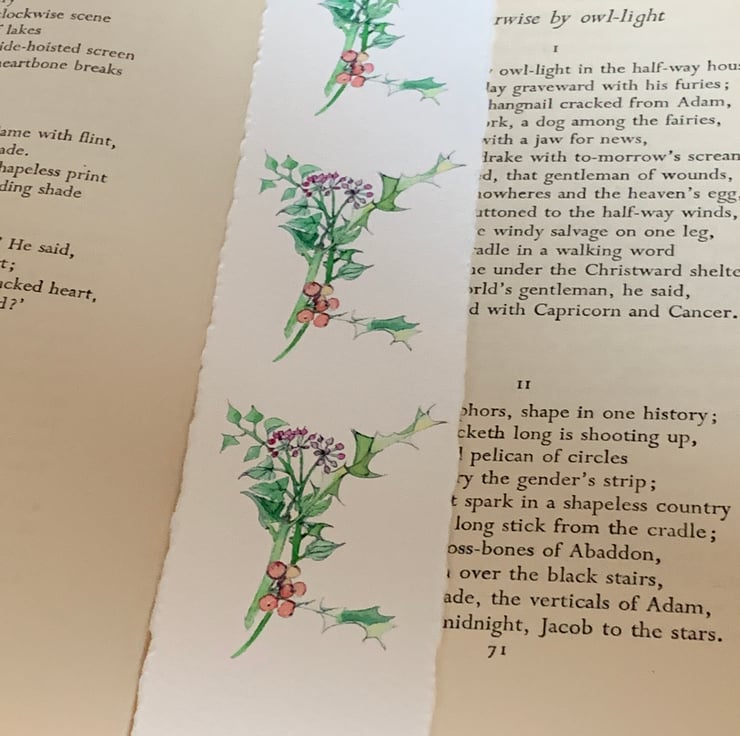 lockwise scene
lakes
ide-hoisted screen
eartbone breaks
ame with flint,
ade.
hapeless print
ding shade
He said,
t;
acked heart,
d?'
rwise by owl-light
I
owl-light in the half-way hous
lay graveward with his furies;
hangnail cracked from Adam,
ork, a dog among the fairies,
with a jaw for news,
drake with to-morrow's scream
d, that gentleman of wounds,
nowheres and the heaven's egg,
uttoned to the half-way winds,
c windy salvage on one leg,
adle in a walking word
ne under the Christward shelte
orld's gentleman, he said,
d with Capricorn and Cancer.
II
phors, shape in one history;
cketh long is shooting up,
pelican of circles
ry the gender's strip;
t spark in a shapeless country
long stick from the cradle;
oss-bones of Abaddon,
over the black stairs,
ade, the verticals of Adam,
midnight, Jacob to the stars.
71